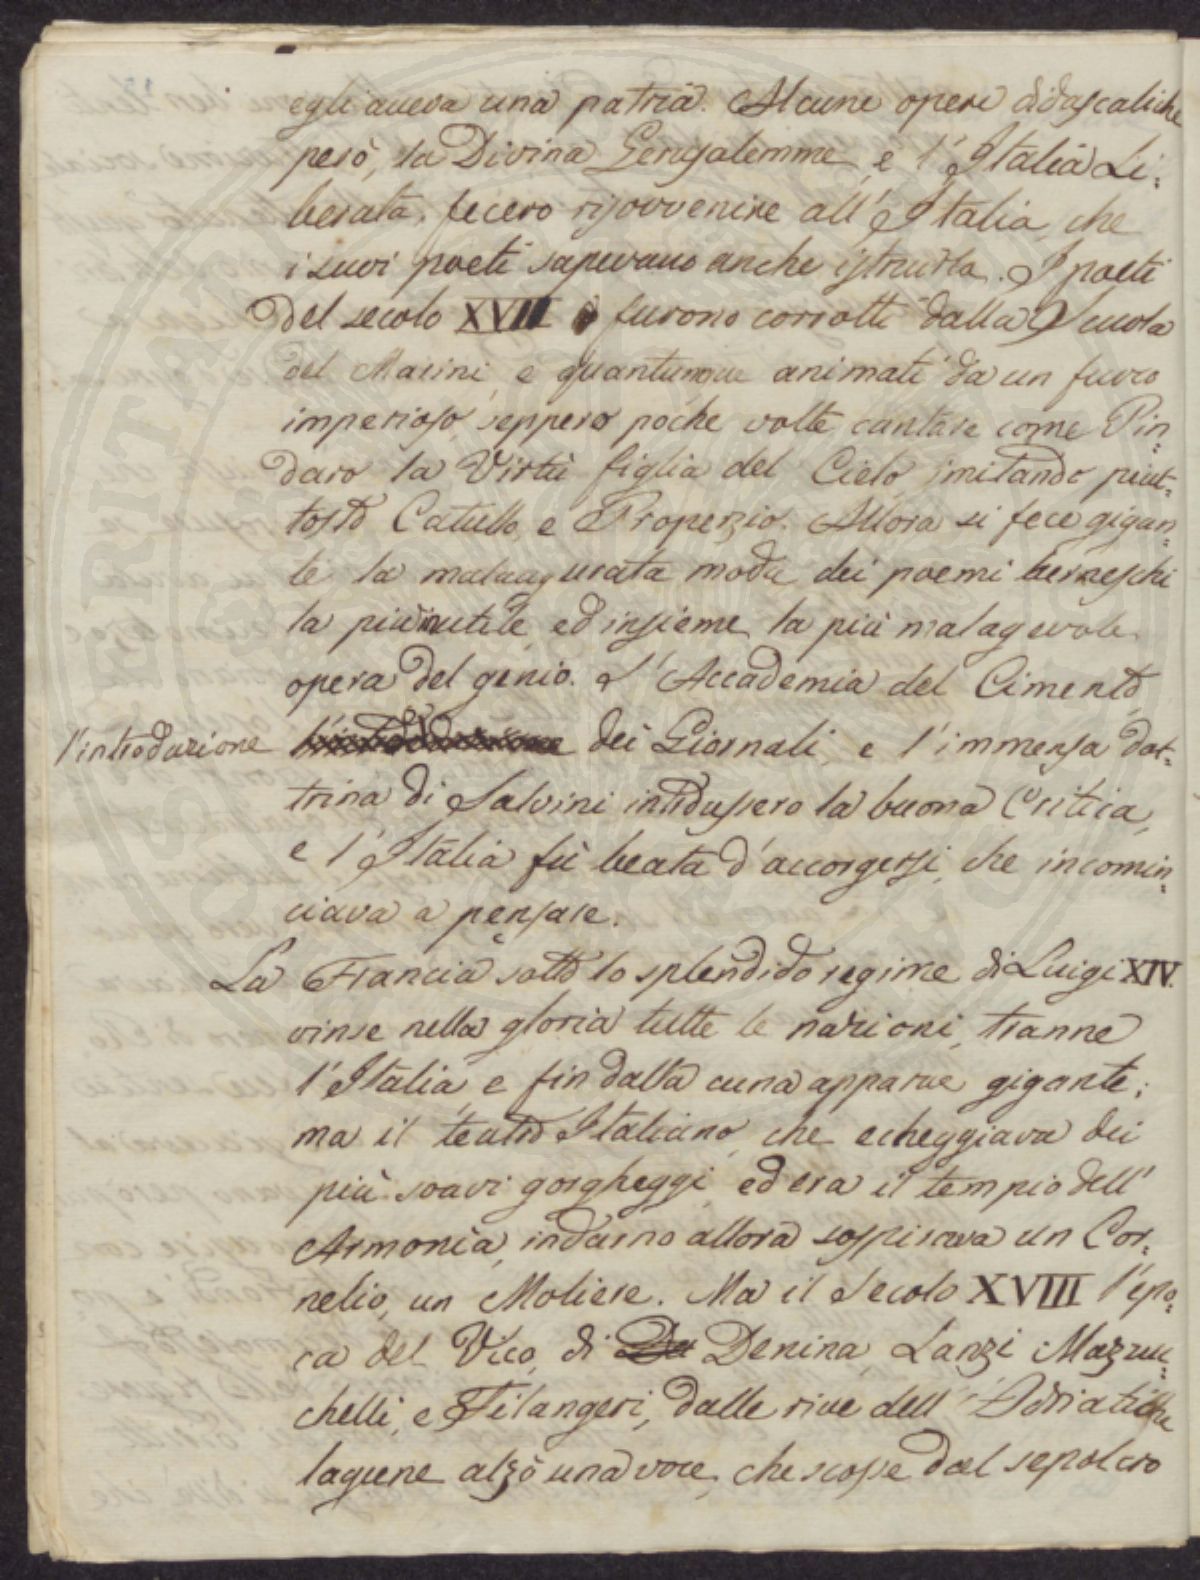 egli aveva una patria. Alcune opere didascaliche
però, la Divina Gerusalemme, e l'Italia Li=
berata, fecero risovvenire all'Italia, che
i suoi poeti sapevano anche istruirla. I poeti
del secolo XVII furono corrotti dalla Scuola
del Marini, e quantunque animati da un fuoco
imperioso, seppero poche volte cantare come Pin=
daro la Virtù figlia del Cielo, imitando piut=
tosto Catullo, e Properzio. Allora si fece gigan=
te la malaugurata moda dei poemi berneschi
la più inutile, ed insieme la più malagevole
opera del genio. L'Accademia del Cimento,
l'introduzione dei Giornali, e l'immensa dot=
trina di Salvini introdussero la buona Critica,
e l'Italia fù beata d'accorgersi, che incomin=
ciava a pensare.
La Francia sotto lo splendido regime di Luigi XIV.
vinse nella gloria tutte le nazioni, tranne
l'Italia, e fin dalla cuna apparve gigante;
ma il teatro Italiano, che echeggiava dei
più soavi gorgheggi, ed era il tempio dell'
Armonia, indarno allora sospirava un Cor=
nelio, un Moliere. Ma il Secolo XVIII l'epo=
ca del Vico, di Denina, Lanzi Mazzuc=
chelli, e Filangeri, dalle rive dell'Adriatiche
lagune alzò una voce, che scosse dal sepolcro